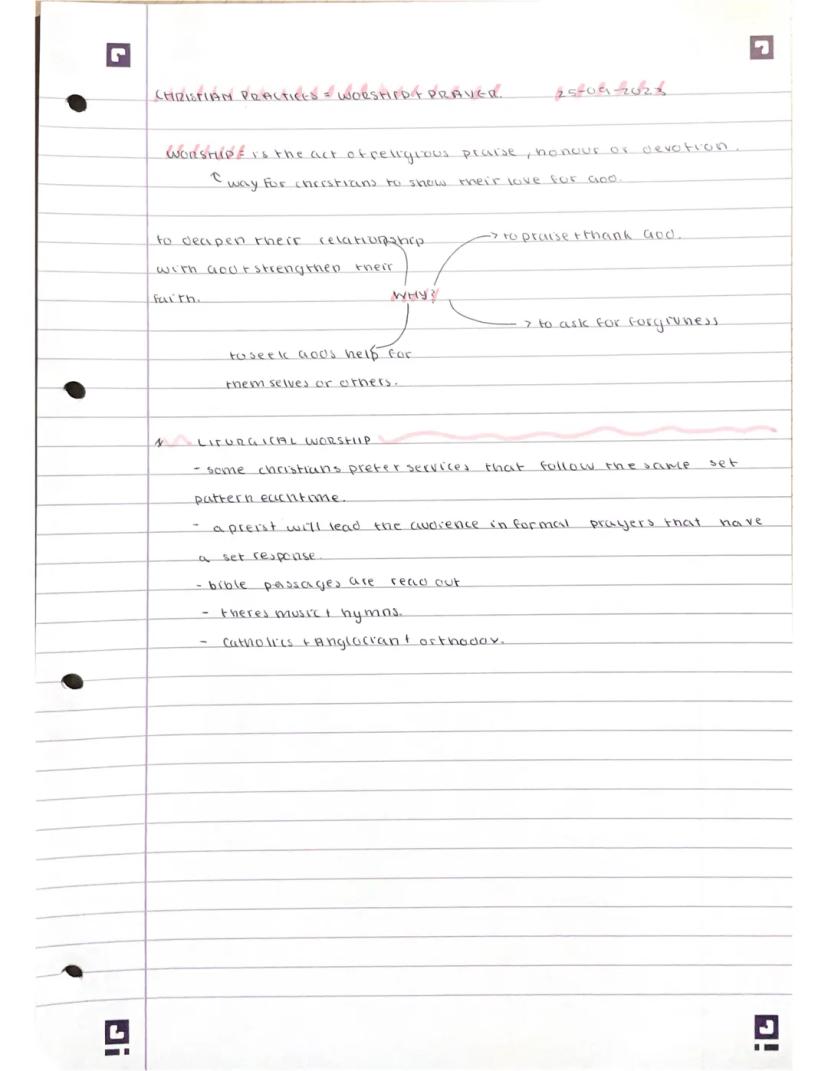 CHRISTIAN PRACTICES = WORSHIP + PRAYER. 25-09-2023
WORSHIP = is the act of religious praise, honour or devotion.
way for christians to show their love for God.
to deapen their relationship
with God + strengthen their
faith.
> to praise + thank God.
WHY?
> to ask for forgivness
to seek Gods help for
themselves or others.
LITURGICAL WORSHIP
- some christians prefer services that follow the same set
pattern each time.
- a preist will lead the audience in formal prayers that have
a set response.
- bible passages are read out
- theres music + hymns.
- Catholics + Anglocian + orthodox.